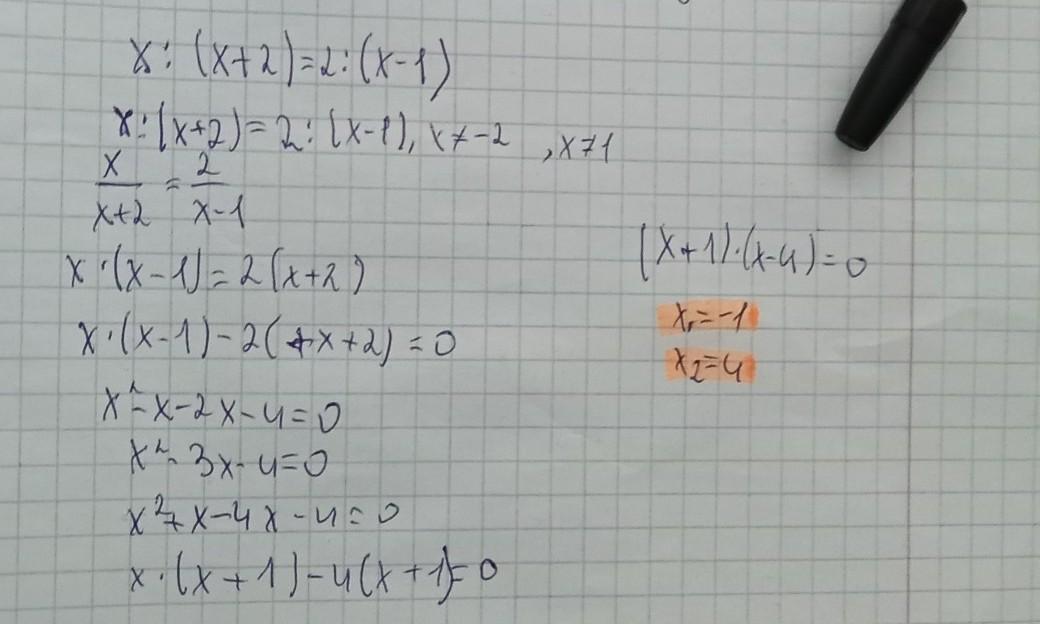 x : (x+2)=2:(x-1)
x:(x+2)=2:(x-1), x≠-2 , x≠1
x/(x+2) = 2/(x-1)
x·(x-1)=2(x+2)
x·(x-1)-2(+x+2)=0
x²-x-2x-4=0
x²-3x-4=0
x²+x-4x-4=0
x·(x+1)-4(x+1)=0
(x+1)·(x-4)=0
x₁=-1
x₂=4